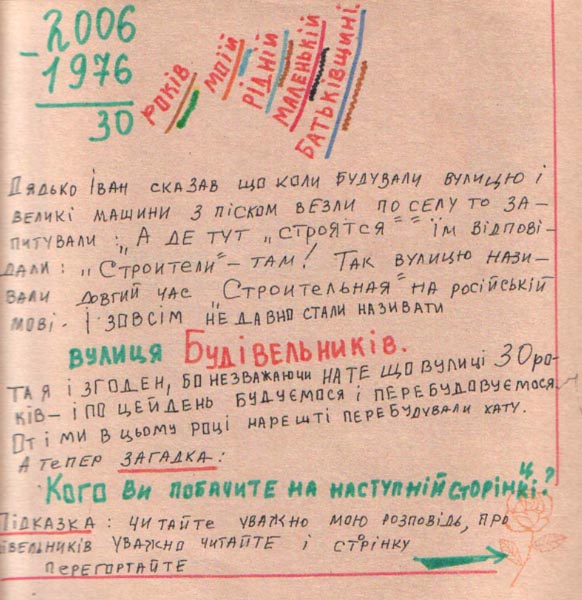 2006
- 1976
30
РОКІВ
МОЇЙ
РІДНІЙ
МАЛЕНЬКІЙ
БАТЬКІВЩИНІ.
ДЯДЬКО ІВАН СКАЗАВ ЩО КОЛИ БУДУВАЛИ ВУЛИЦЮ І
ВЕЛИКІ МАШИНИ З ПІСКОМ ВЕЗЛИ ПО СЕЛУ ТО ЗА-
ПИТУВАЛИ: „А ДЕ ТУТ „СТРОЯТСЯ"" ЇМ ВІДПОВІ-
ДАЛИ: „СТРОИТЕЛИ" - ТАМ! ТАК ВУЛИЦЮ НАЗИ-
ВАЛИ ДОВГИЙ ЧАС „СТРОИТЕЛЬНАЯ" НА РОСІЙСЬКІЙ
МОВІ. І ЗОВСІМ НЕДАВНО СТАЛИ НАЗИВАТИ
ВУЛИЦЯ БУДІВЕЛЬНИКІВ.
ТА Я І ЗГОДЕН, БО НЕЗВАЖАЮЧИ НА ТЕ ЩО ВУЛИЦІ 30 РО-
КІВ - І ПО ЦЕЙ ДЕНЬ БУДУЄМОСЯ І ПЕРЕБУДОВУЄМОСЯ.
ОТ І МИ В ЦЬОМУ РОЦІ НАРЕШТІ ПЕРЕБУДУВАЛИ ХАТУ.
А ТЕПЕР ЗАГАДКА:
КОГО ВИ ПОБАЧИТЕ НА НАСТУПНІЙ СТОРІНЦІ?
ПІДКАЗКА: ЧИТАЙТЕ УВАЖНО МОЮ РОЗПОВІДЬ, ПРО
ІВЕЛЬНИКІВ УВАЖНО ЧИТАЙТЕ І СТОРІНКУ
ПЕРЕГОРТАЙТЕ